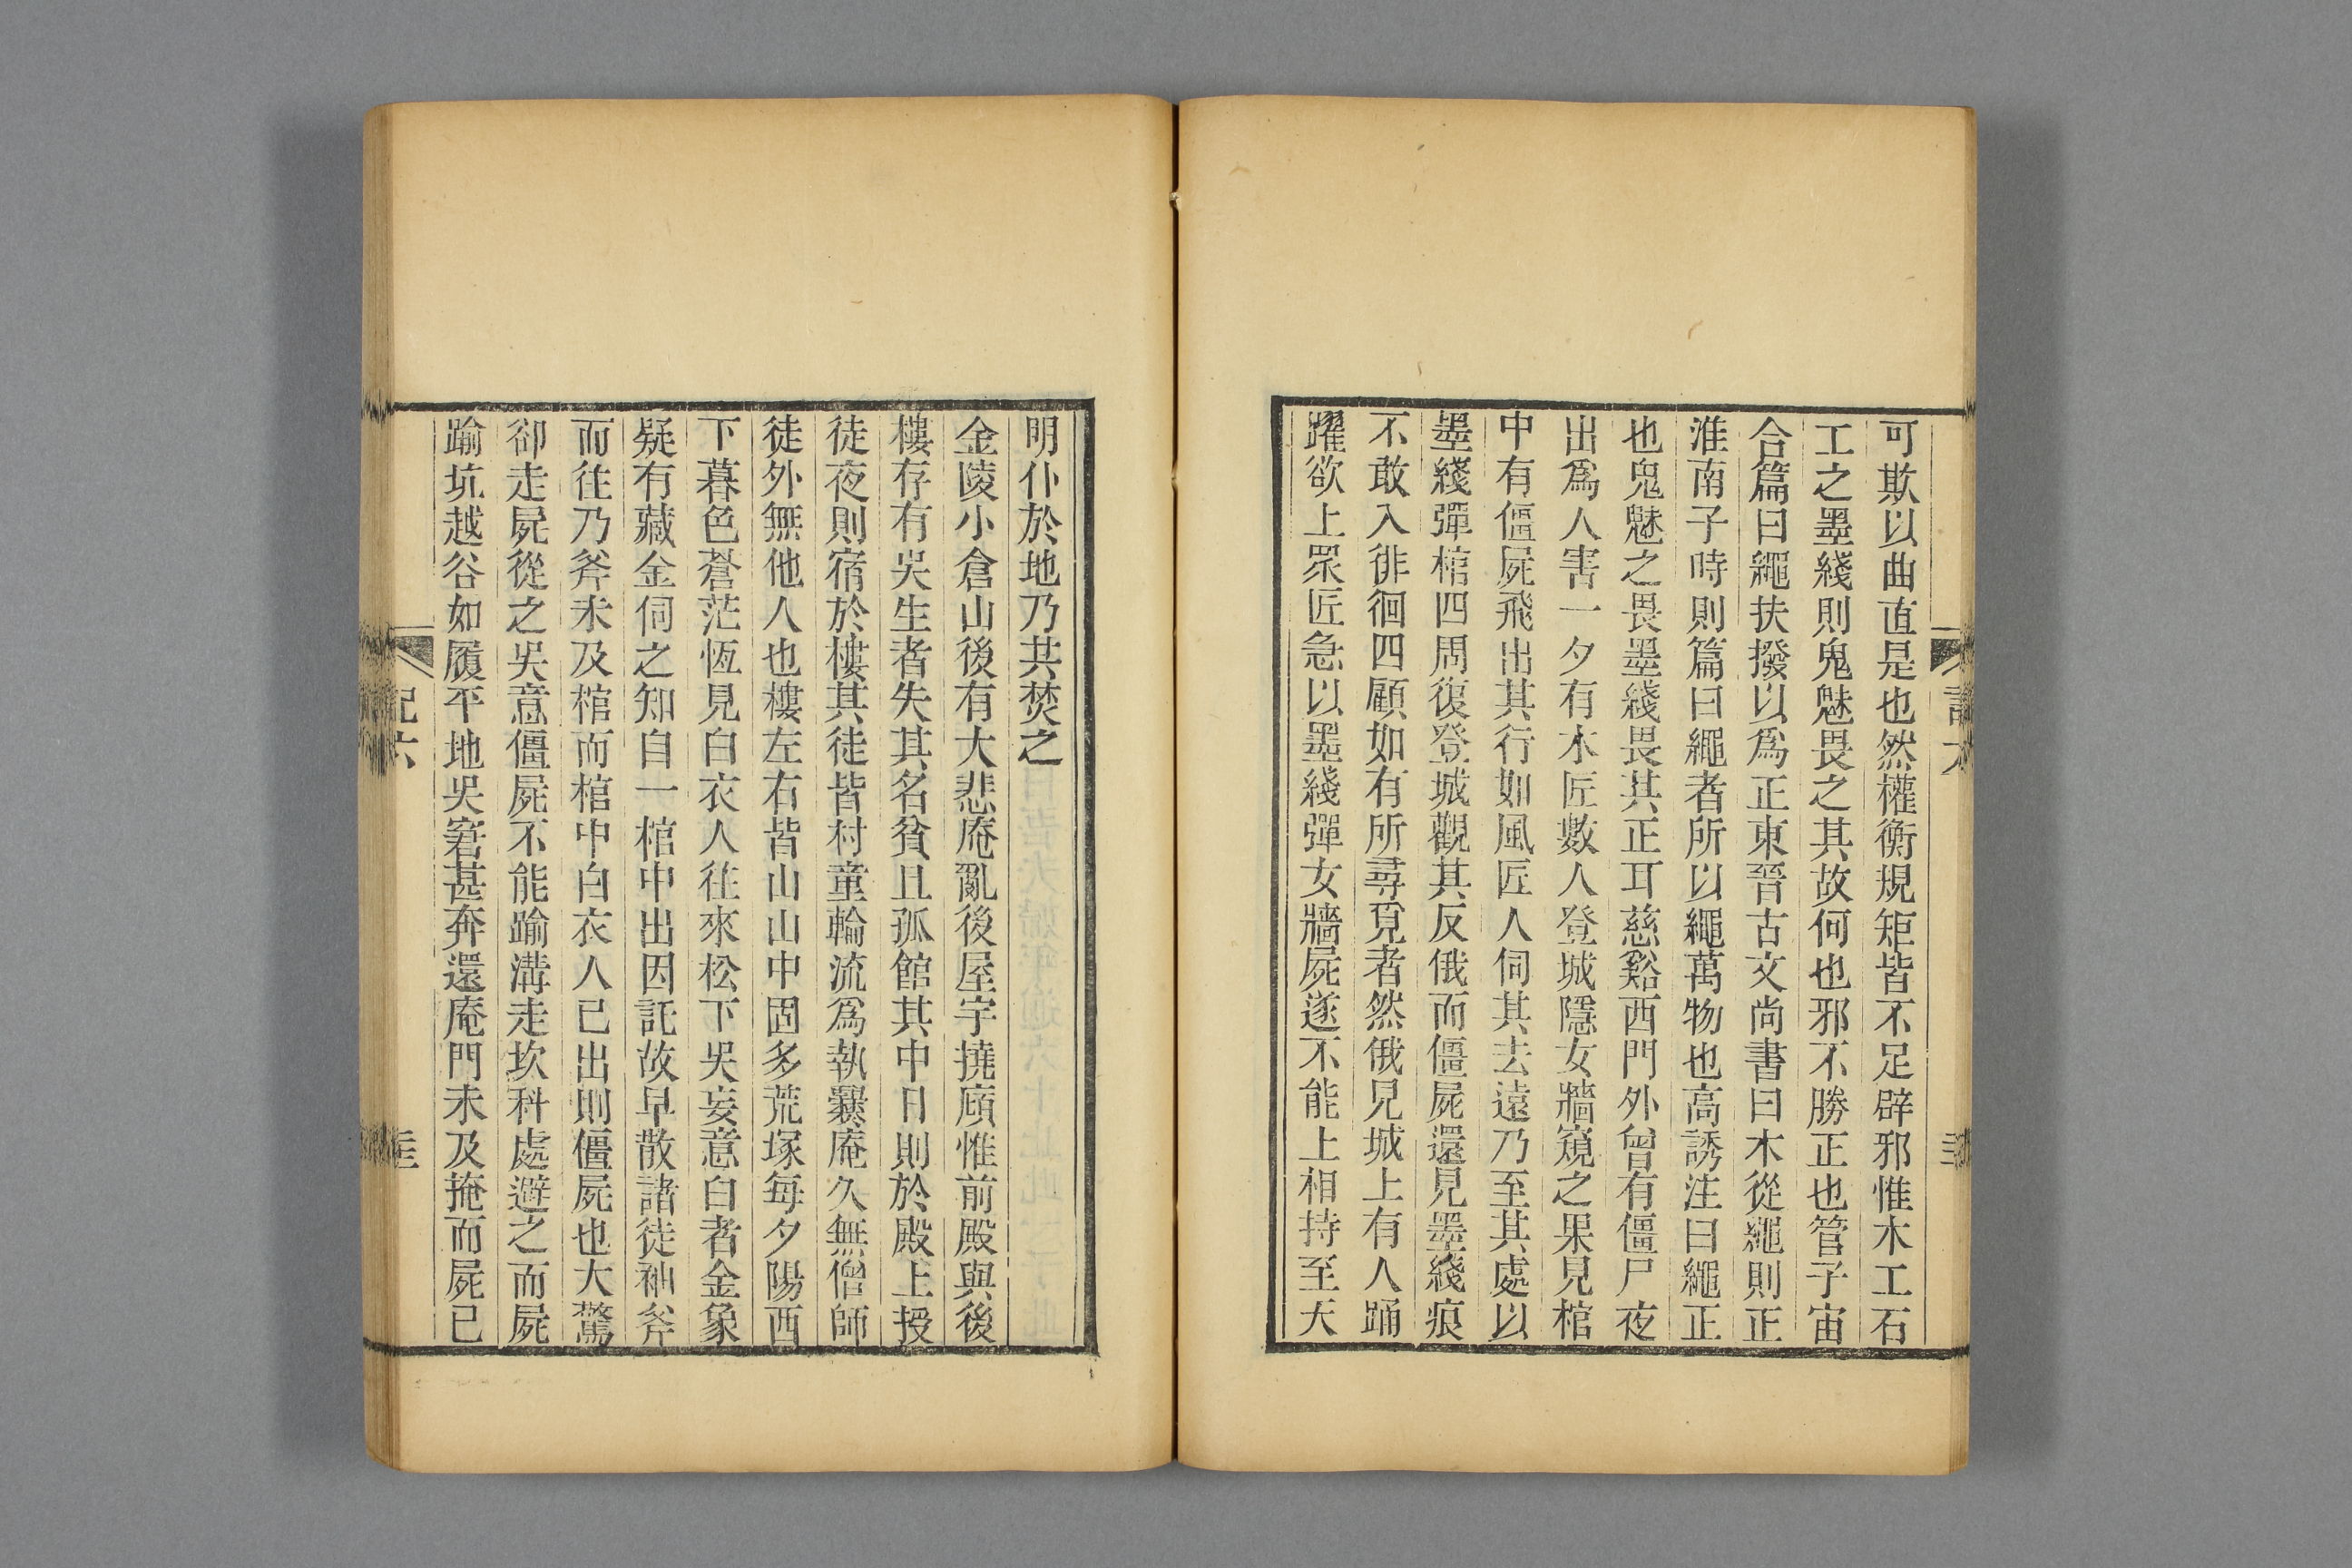 可欺以曲直是也然權衡規矩皆不足辟邪惟木工石
工之墨綫則鬼魅畏之其故何也邪不勝正也管子宙
合篇曰繩扶撥以爲正東晉古文尚書曰木從繩則正
淮南子時則篇曰繩者所以繩萬物也高誘注曰繩正
也鬼魅之畏墨綫畏其正耳慈谿西門外曾有僵尸夜
出爲人害一夕有木匠數人登城隱女牆窺之果見棺
中有僵屍飛出其行如風匠人伺其去遠乃至其處以
墨綫彈棺四周復登城觀其反俄而僵屍還見墨綫痕
不敢入徘徊四顧如有所尋覓者然俄見城上有人踊
躍欲上眾匠急以墨綫彈女牆屍遂不能上相持至天
明仆於地乃共焚之
金陵小倉山後有大悲庵亂後屋宇撓頎惟前殿與後
樓存有吳生者失其名貧且孤館其中日則於殿上授
徒夜則宿於樓其徒皆村童輪流爲執爨庵久無僧師
徒外無他人也樓左右皆山山中固多荒塚每夕陽西
下暮色蒼茫恆見白衣人往來松下吳妄意白者金象
疑有藏金伺之知自一棺中出因託故早散諸徒袖斧
而往乃斧未及棺而棺中白衣人已出則僵屍也大驚
卻走屍從之吳意僵屍不能踰溝走坎科處避之而屍
踰坑越谷如履平地吳窘甚奔還庵門未及掩而屍已
記六